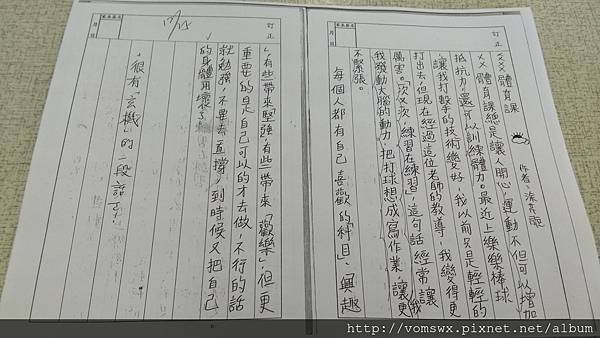 訂正
月 日
××× 體育課
作者:涂
××體育課總是讓人開心,運動不但可以增加
抵抗力,還可以訓練體力。最近上樂樂棒球
,讓我打擊的技術變好,我以前只是輕輕的
打出去,但現在經過這位老師的教導,我變得更
厲害。「次次練習在練習」這句話經常讓我
我發動大腦的動力,把打球想成寫作業,讓更
不緊張。
每個人都有自己喜歡的科目、興趣
訂正
月 日
12/25
,有些帶來堅強,有些帶來「歡樂」,但更
重要的是自己可以的才去做,不行的話
就勉強,不要去直撐,到時候又把自己
的身體用壞了。
很有「玄機」的一段話了!
http://vomswx.pixnet.net/album